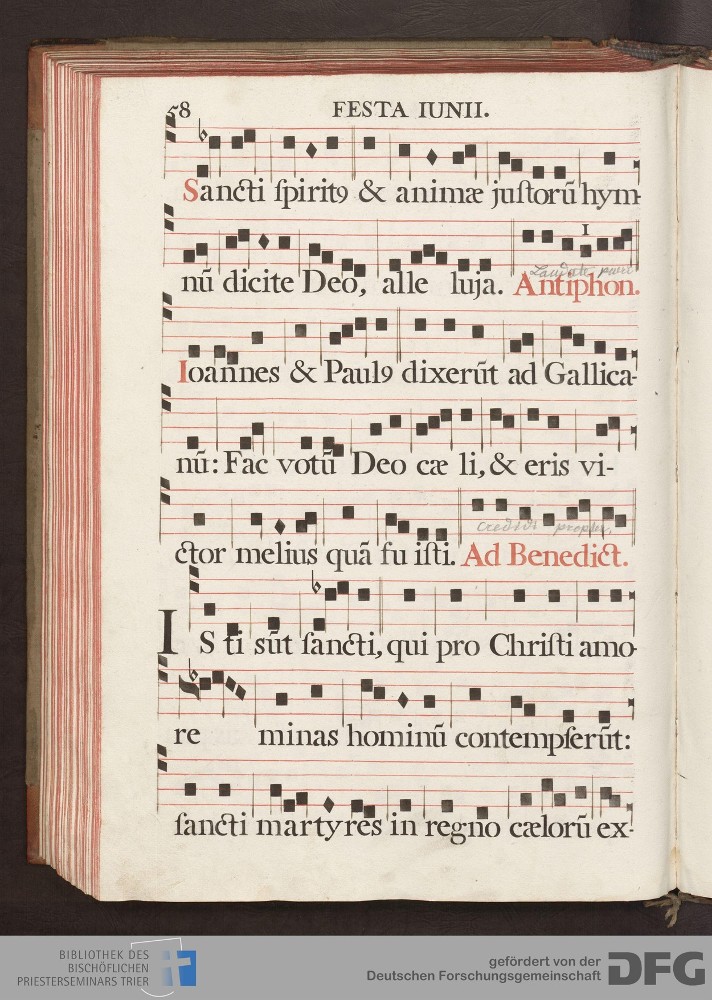 58 FESTA IUNII.
Sancti ſpirit9 & animæ juſtorū hym-
nū dicite Deo, alle luja. Antiphon.
Laudate pueri
Ioannes & Paul9 dixerūt ad Gallica-
nū: Fac votū Deo cæ li, & eris vi-
ctor melius quā fu iſti. Ad Benedict.
Credidi propter.
I S ti sūt ſancti, qui pro Chriſti amo-
re minas hominū contempſerūt:
ſancti martyres in regno cælorū ex-
BIBLIOTHEK DES
BISCHÖFLICHEN
PRIESTERSEMINARS TRIER
gefördert von der
Deutschen Forschungsgemeinschaft
DFG